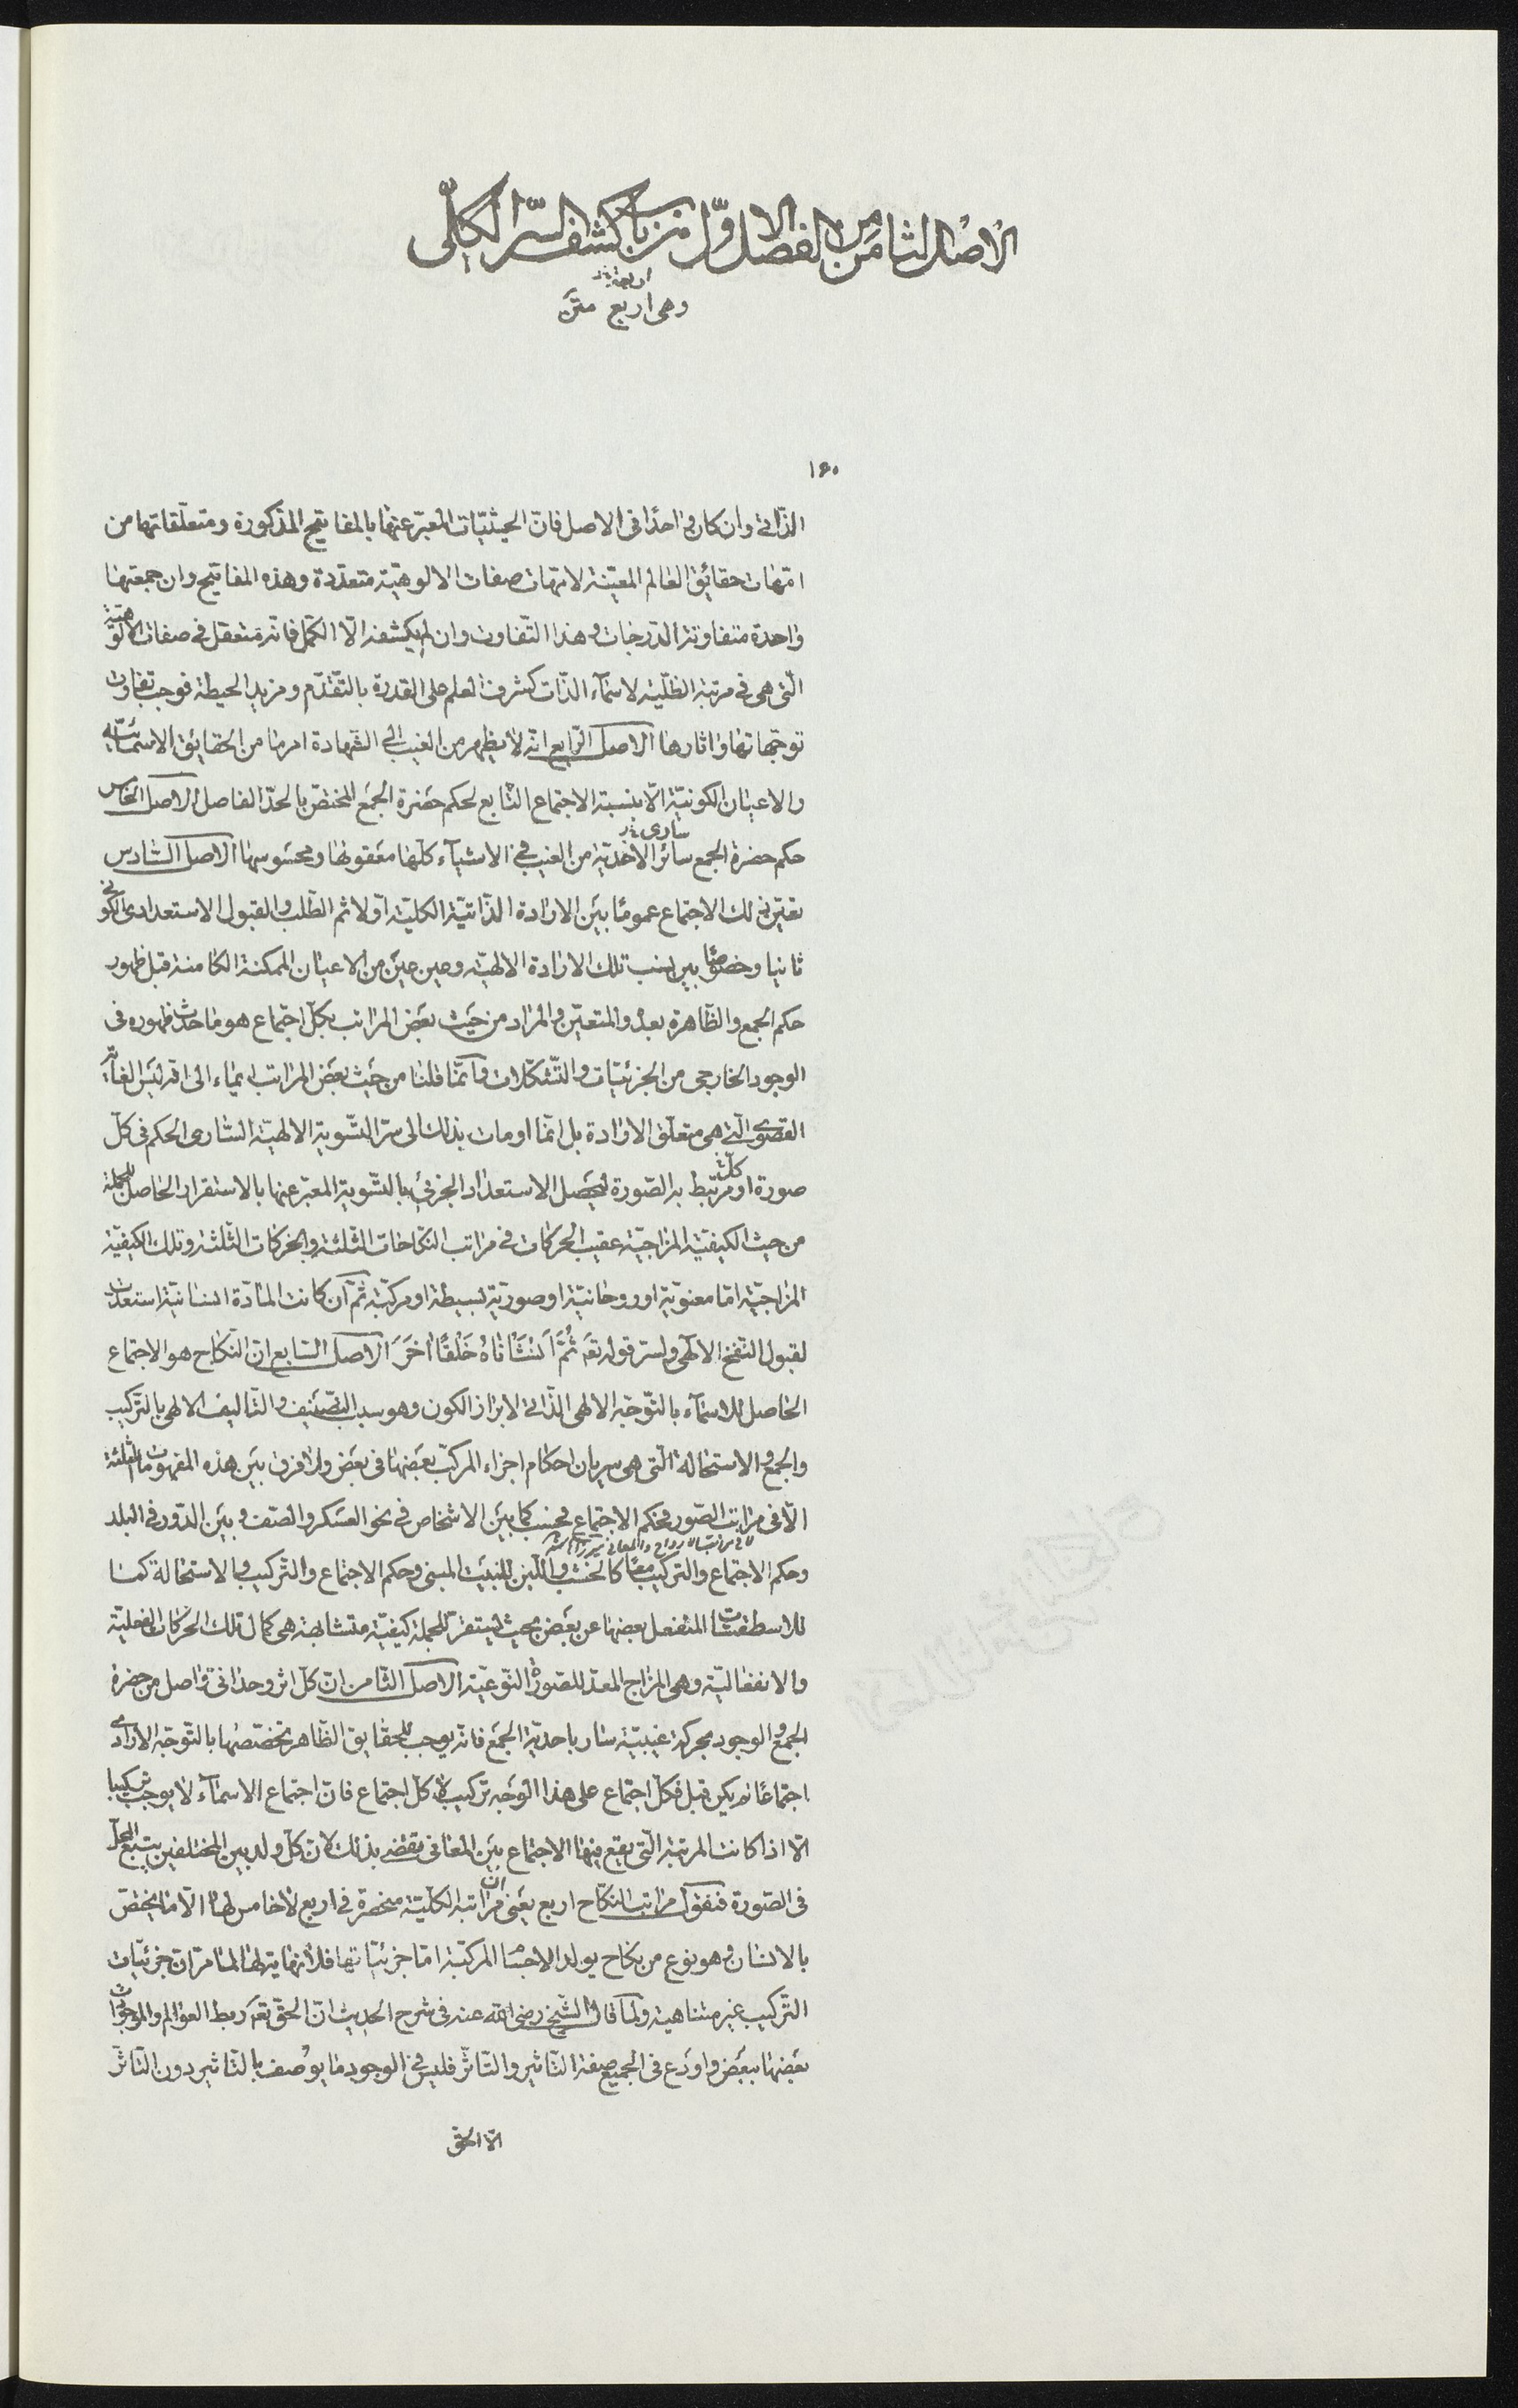 الاصل الثامن من الفصل الاول من باب كشف السرّ الكلّى
اربعة
وهى اربع متن
١٦٠
الذّاتى وان كان واحدًا فى الاصل فانّ الحيثيّات المعبّر عنها بالمفاتيح المذكورة ومتعلّقاتها من
امّهات حقائق العالم المعيّنة لامّهات صفات الالوهيّة متعدّدة وهذه المفاتيح وان جمعتها
واحدة متفاوتة الدّرجات وهذا التّفاوت وان لم يكشفه الّا الكمّل فانّه متعقل فى صفات الالوهيّة
الّتى هى فى مرتبة الظلّية لاسماء الذّات كشرف العلم على القدرة بالتّقدّم ومزيد الحيطة فوجب تفاوت
توجّهاتها واثارها الاصل الرّابع انّه لا يظهر من الغيب الى الشّهادة امر ما من الحقائق الاسمائيّة
والاعيان الكونيّة الّا بنسبة الاجتماع التّابع لحكم حضرة الجمع المختصّ بالحدّ الفاصل الاصل الخامس
سارى
حكم حضرة الجمع سائر الاحديّة من الغيب فى الاشياء كلّها معقولها ومحسوسها الاصل السّادس
تعيّن ذلك الاجتماع عمومًا بين الارادة الذّاتيّة الكليّة اوّلا ثم الطّلب والقبول الاستعدادى الكونى
ثانيا وخصوصًا بين نسب تلك الارادة الالهيّة وعين عين من الاعيان الممكنة الكامنة قبل ظهور
حكم الجمع والظّاهرة بعده والمتعيّن والمراد من حيث بعض المراتب بكلّ اجتماع هو ما حدث ظهوره فى
الوجود الخارجى من الجزئيّات والتّشكّلات وانّما قلنا من حيث بعض المراتب ايماء الى انّه ليس الغاية
القصوى الّتى هى متعلّق الارادة بل انّما اومات بذلك الى سرّ التّسوية الالهيّة السّارى الحكم فى كلّ
كلّ
صورة او مرتبط به الصّورة ليحصل الاستعداد الجزئى بالتّسوية المعبّر عنها بالاستقرار الحاصل للجملة
من حيث الكيفيّة المزاجيّة عقيب الحركات فى مراتب النّكاحات الثّلثة والحركات الثّلثة وتلك الكيفيّة
المزاجيّة امّا معنويّة او روحانيّة او صوريّة بسيطة او مركّبة ثمّ ان كانت المادّة انسانيّة استعدّت
لقبول النّفخ الالهى ولسرّ قوله تعَ ثُمَّ اَنْشَأْنَاهُ خَلْقًا اٰخَرَ الاصل السّابع انّ النّكاح هو الاجتماع
الحاصل للاسماء بالتّوجّه الالهى الذّاتى لابراز الكون وهو سبب التّصنيف والتّاليف الالهى بالتّركيب
والجمع والاستحالة الّتى هى سريان احكام اجزاء المركّب بعضها فى بعض ولا فرق بين هذه المفهومات الثلثة
الّا فى مراتب الصّور فحكم الاجتماع فحسب كما بين الاشخاص فى نحو العسكر والصّف وبين الدّور فى البلد
وحكم الاجتماع والتّركيب معًا كالخشب واللّبن للبيت المبنى وحكم الاجتماع والتّركيب والاستحالة كما
للاسطقسّات المنفعل بعضها عن بعض بحيث تستقرّ للجملة كيفيّة متشابهة هى كمال تلك الحركات الفعليّة
والانفعاليّة وهى المزاج المعدّ للصورة النّوعيّة الاصل الثّامن انّ كلّ اثر وحدانى واصل من حضرة
الجمع والوجود بحركة غيبيّة سار باحديّة الجمع فانّه يوجب للحقايق الظّاهر تخصّصها بالتّوجّه الارادى
اجتماعًا لم يكن قبل فكلّ اجتماع على هذا الوجه تركيب لا كلّ اجتماع فانّ اجتماع الاسماء لا يوجب تركيبا
الّا اذا كانت المرتبة الّتى يقع فيها الاجتماع بين المعانى تقضى بذلك لانّ كلّ ولد بين المختلفين يتبع المحلّ
فى الصّورة فنقول مراتب النكاح اربع يعنى انّ مراتبه الكلّيّة منحصرة فى اربع لا خامس لها الّا ما يختصّ
بالانسان وهو نوع من نكاح يولد الاجسام المركّبة امّا جزئيّاتها فلا نهاية لها لما مرّ انّ جزئيّات
التّركيب غير متناهية ولما قال الشّيخ رضى الله عنه فى شرح الحديث انّ الحقّ تعَ ربط العوالم والموجودات
بعضها ببعض واودع فى الجميع صفة التّاثير والتّاثّر فليس فى الوجود ما يوصف بالتّاثير دون التّاثّر
الّا الحقّ